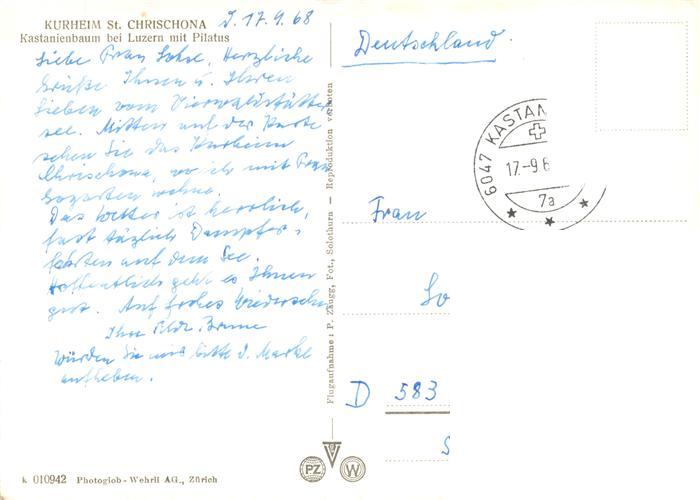 KURHEIM St. CHRISCHONA
Kastanienbaum bei Luzern mit Pilatus
17.9.68
Liebe Frau Herzliche
Grüße Ihnen u. Ihren
Lieben vom Vierwaldstätter
see. Mitten auf der Karte
sehen Sie das Kurheim
Chrischona, wo ich mit Frau
wohne.
Das Wetter ist herrlich,
fast täglich Dampfer-
fahrten auf dem See.
Hoffentlich geht es Ihnen
gut. Auf frohes Wiedersehn
Ihre
Würden Sie mir bitte d. Marke
aufheben.
k 010942 Photoglob-Wehrli AG., Zürich
Flugaufnahme: P. Zaugg, Fot., Solothurn — Reproduktion verboten
PZ W
Deutschland.
6047 KASTAN
17.-9.6
7a
Frau
So
D 583
S